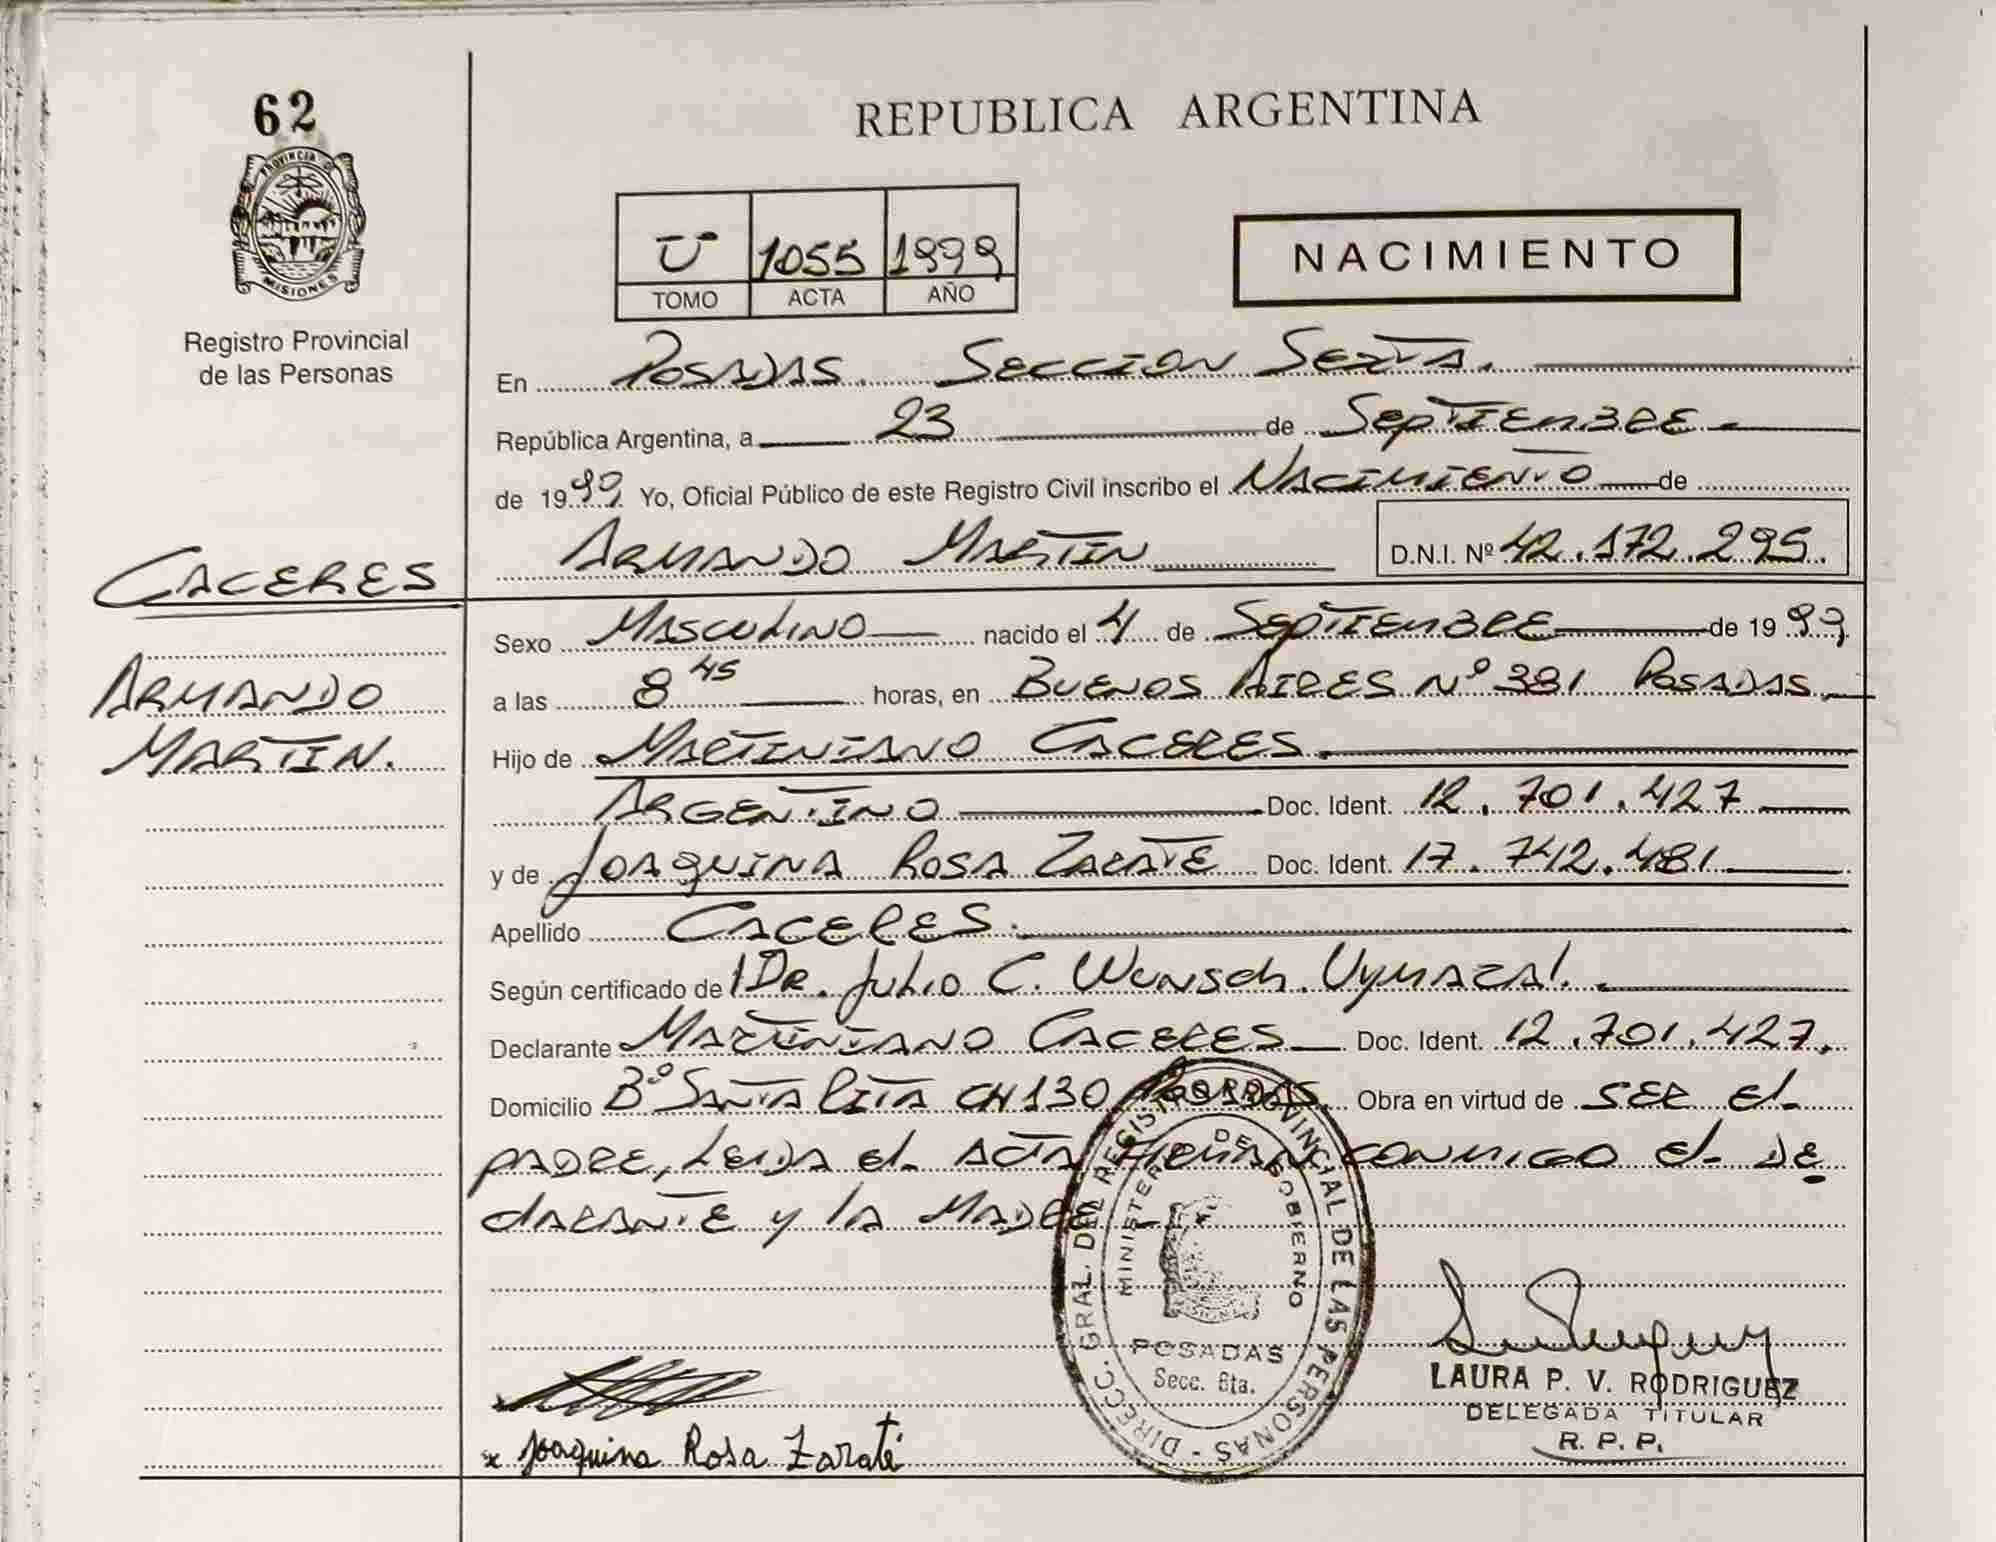 62
PROVINCIA DE
MISIONES
Registro Provincial
de las Personas
CACERES
ARMANDO
MARTIN.
REPUBLICA ARGENTINA
U 1055 1999
TOMO ACTA AÑO
NACIMIENTO
En POSADAS. SECCION SEXTA.
República Argentina, a 23 de SEPTIEMBRE
de 1999 Yo, Oficial Público de este Registro Civil inscribo el NACIMIENTO de
ARMANDO MARTIN D.N.I. Nº 42.172.295.
Sexo MASCULINO nacido el 4 de SEPTIEMBRE de 1999
a las 8 45 horas, en BUENOS AIRES Nº 381 POSADAS
Hijo de MARTINIANO CACERES.
ARGENTINO Doc. Ident. 12.701.427
y de JOAQUINA ROSA ZARATE Doc. Ident. 17.742.481
Apellido CACERES.
Según certificado de DR. JULIO C. WUNSCH. UYMAZAL.
Declarante MARTINIANO CACERES Doc. Ident. 12.701.427.
Domicilio Bº SANTA RITA CH 130 POSADAS. Obra en virtud de SER EL
PADRE, LEIDA EL ACTA FIRMAN CONMIGO EL DE
CLARANTE Y LA MADRE
DIRECC. GRAL. DEL REGISTRO PROVINCIAL DE LAS PERSONAS -
MINISTERIO DE GOBERNO
MISIONES
POSADAS
Secc. 6ta.
LAURA P. V. RODRIGUEZ
DELEGADA TITULAR
R. P. P.
x Joaquina Rosa Zaraté